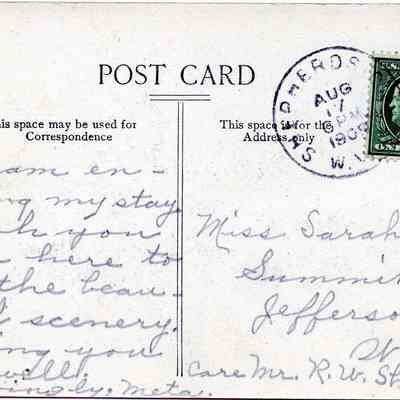 POST CARD
his space may be used for
Correspondence
This space is for the
Address only
SHEPHERDS
AUG
17
PM
1909
W.V
am en-
ng my stay
h you
here to
the beau-
scenery.
ing you
well.
ingly, Meta.
Miss Sarah
Summi
Jefferso
W
Care Mr. R. W. Sh